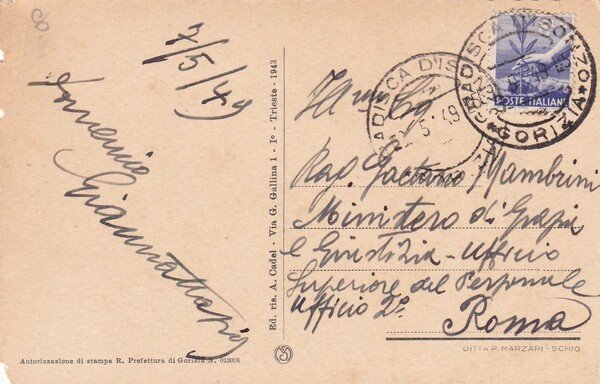 8
7/5/49
Domenico
Giannattasio
Ed. ris. A. Cadel - Via G. Gallina 1 - Iº - Trieste - 1943
Autorizzazione di stampa R. Prefettura di Gorizia N. 013006
GRADISCA D'ISONZO
GORIZIA
POSTE ITALIANE
ADISCA D'IS
5 · 49
Rag. Gaetano Mambrini
Ministero di Grazia
e Giustizia - Ufficio
Superiore del Personale
Ufficio 2º
Roma
DITTA P. MARZARI - SCHIO